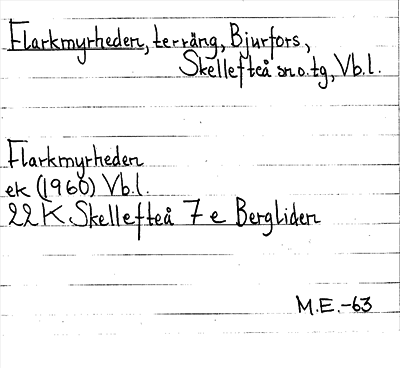 Flarkmyrheden, terräng, Bjurfors,
Skellefteå sn o. tg, Vb.l.
Flarkmyrheden
ek (1960) Vb.l.
22 K Skellefteå 7 e Bergliden
M.E.-63